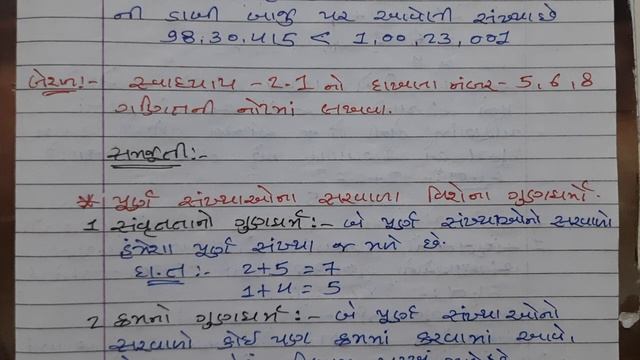 ની ડાબી બાજુ પર આવેલી સંખ્યા છે
98,30,415 < 1,00,23,001
નોંધ:- સ્વાધ્યાય - 2.1 નો દાખલા નંબર - 5, 6, 8
ગણિતની નોટમાં લખવા.
સમજુતી:-
* પૂર્ણ સંખ્યાઓના સરવાળા વિશેના ગુણધર્મો.
1 સંવૃતતાનો ગુણધર્મ :- બે પૂર્ણ સંખ્યાઓનો સરવાળો
હંમેશા પૂર્ણ સંખ્યા જ મળે છે.
દા.ત :- 2+5 = 7
1+4 = 5
2 ક્રમનો ગુણધર્મ :- બે પૂર્ણ સંખ્યાઓનો
સરવાળો કોઈ પણ ક્રમમાં કરવામાં આવે,